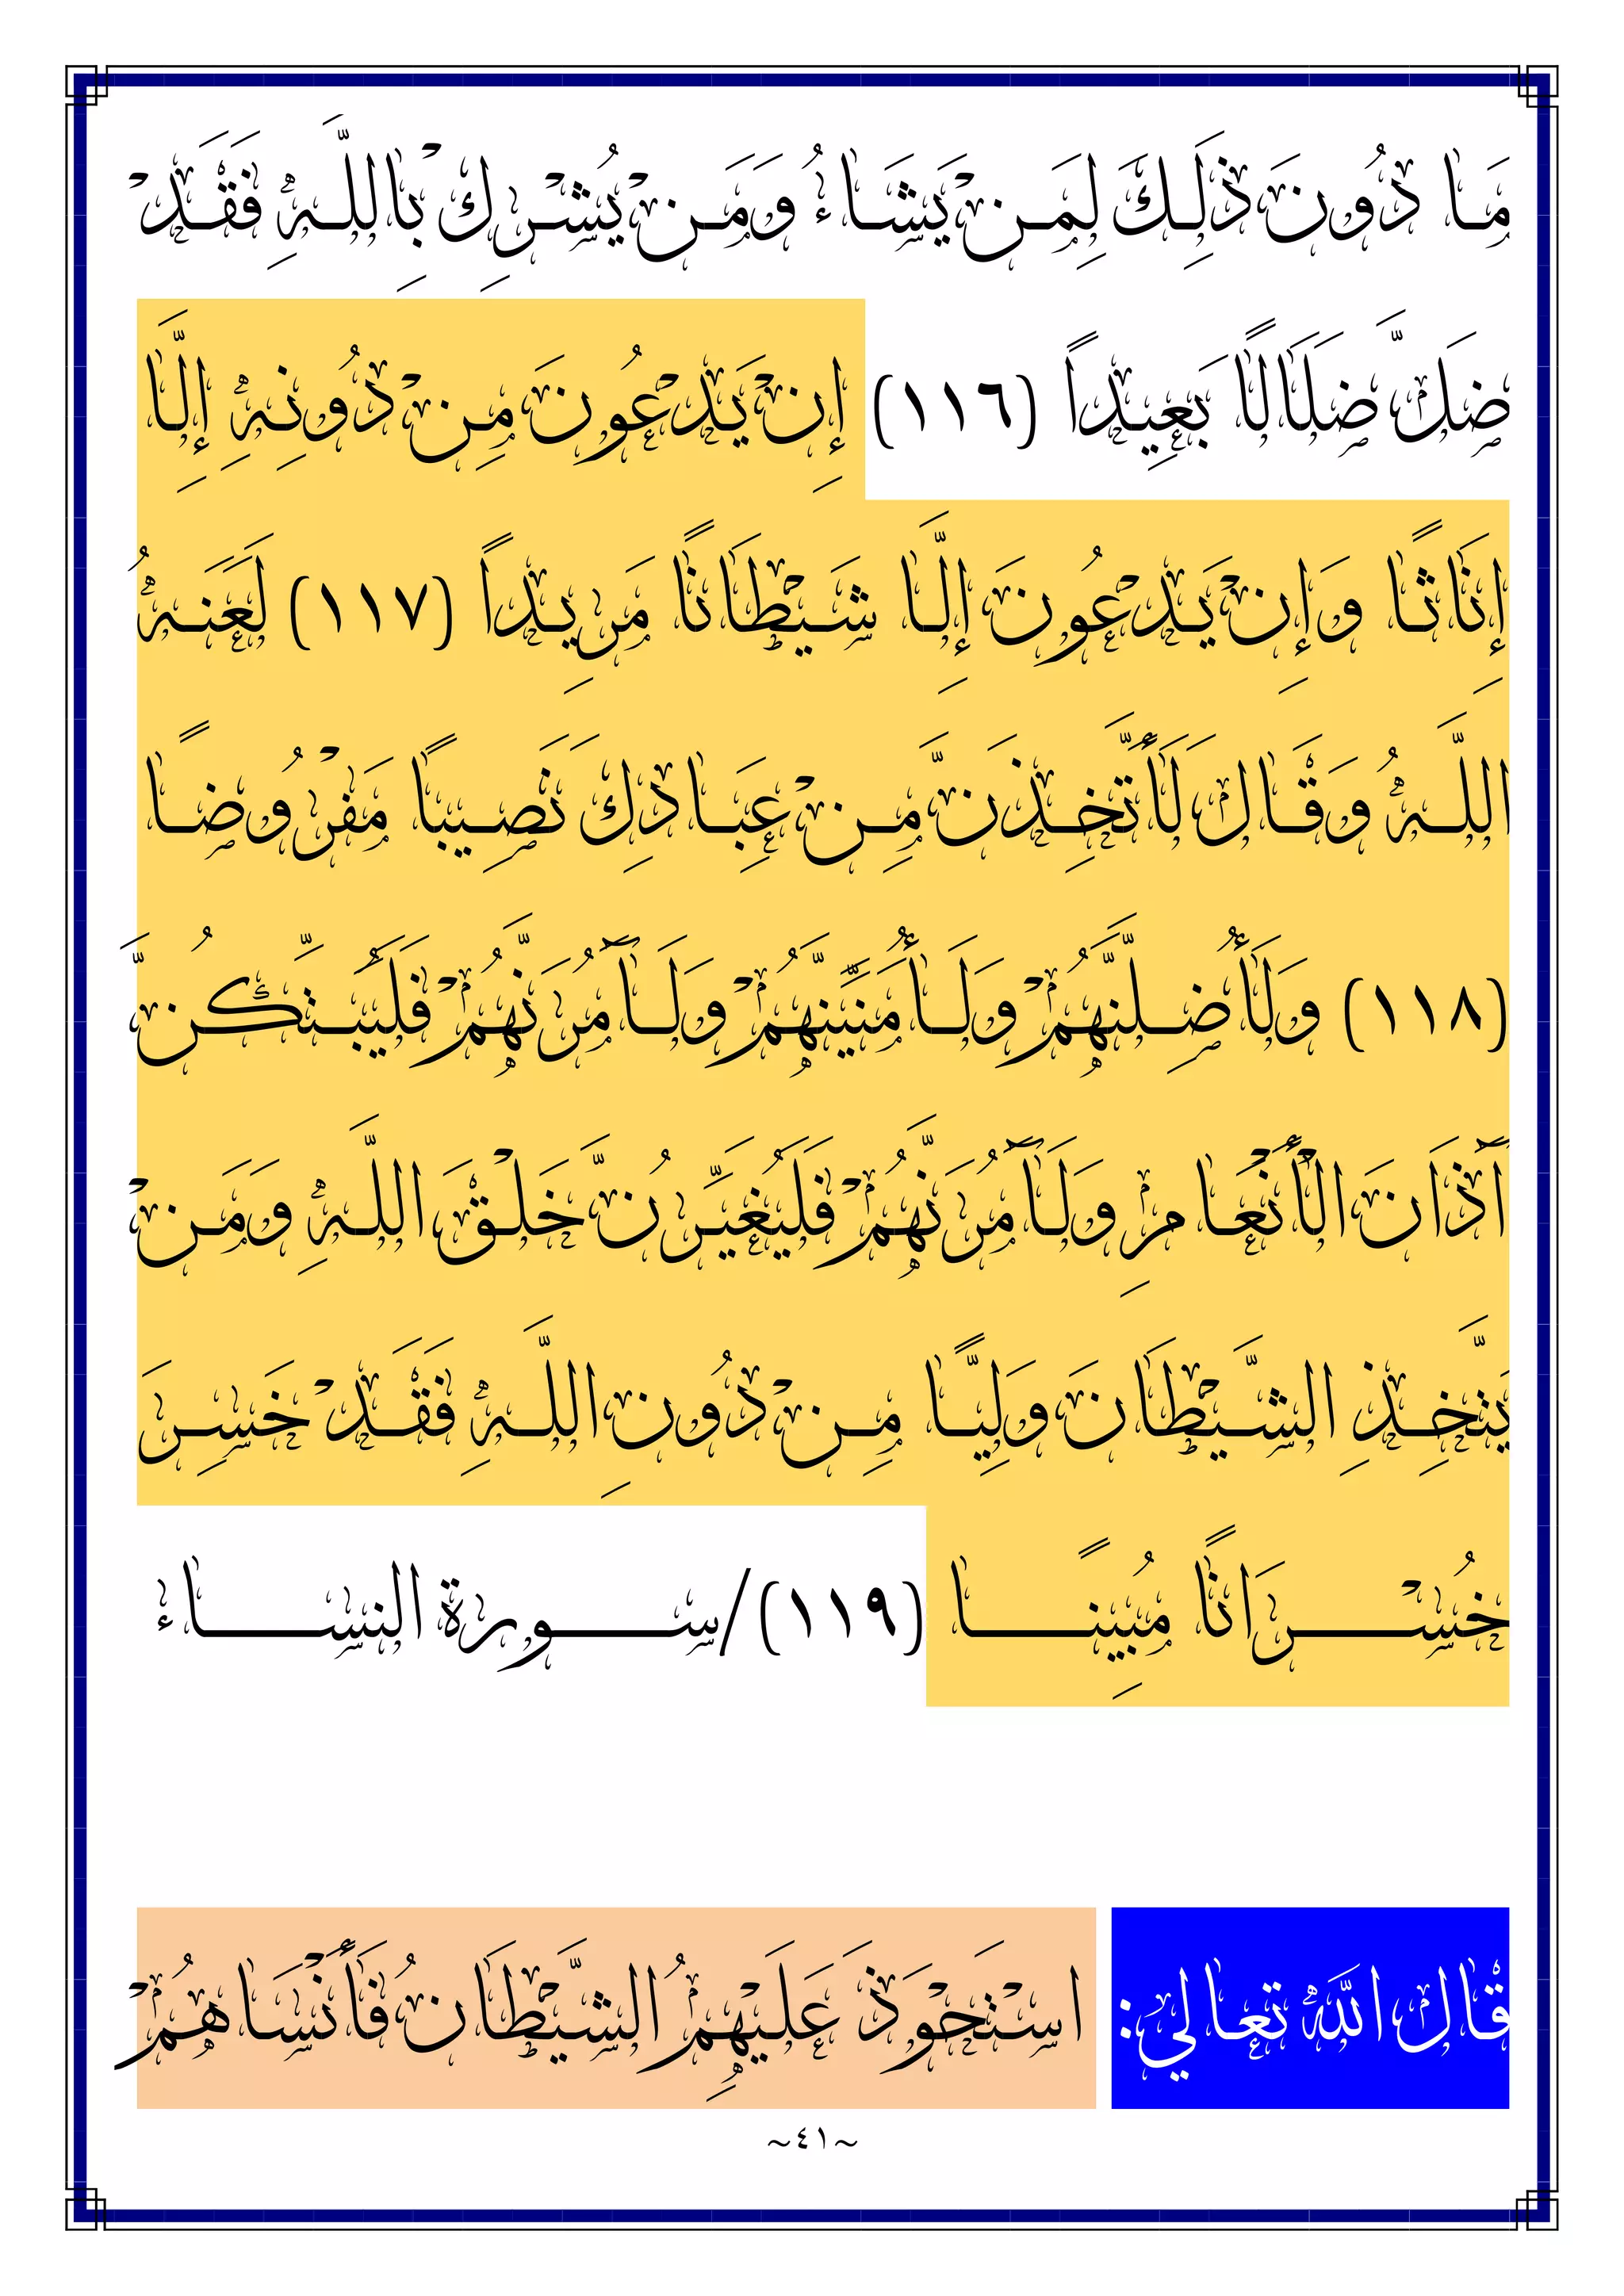 مَا دُونَ ذَلِكَ لِمَنْ يَشَاءُ وَمَنْ يُشْرِكْ بِاللَّهِ فَقَدْ
ضَلَّ ضَلَالًا بَعِيداً (١١٦) إِنْ يَدْعُونَ مِنْ دُونِهِ إِلَّا
إِنَاثًا وَإِنْ يَدْعُونَ إِلَّا شَيْطَانًا مَرِيداً (١١٧) لَعَنَهُ
اللَّهُ وَقَالَ لَأَتَّخِذَنَّ مِنْ عِبَادِكَ نَصِيبًا مَفْرُوضًا
(١١٨) وَلَأُضِلَّنَّهُمْ وَلَأُمَنِّيَنَّهُمْ وَلَآمُرَنَّهُمْ فَلَيُبَتِّكُنَّ
آذَانَ الْأَنْعَامِ وَلَآمُرَنَّهُمْ فَلَيُغَيِّرُنَّ خَلْقَ اللَّهِ وَمَنْ
يَتَّخِذِ الشَّيْطَانَ وَلِيًّا مِنْ دُونِ اللَّهِ فَقَدْ خَسِرَ
خُسْرَانًا مُبِينًا (١١٩)/سورة النساء
قال الله تعالي: اسْتَحْوَذَ عَلَيْهِمُ الشَّيْطَانُ فَأَنْسَاهُمْ
~٤١~